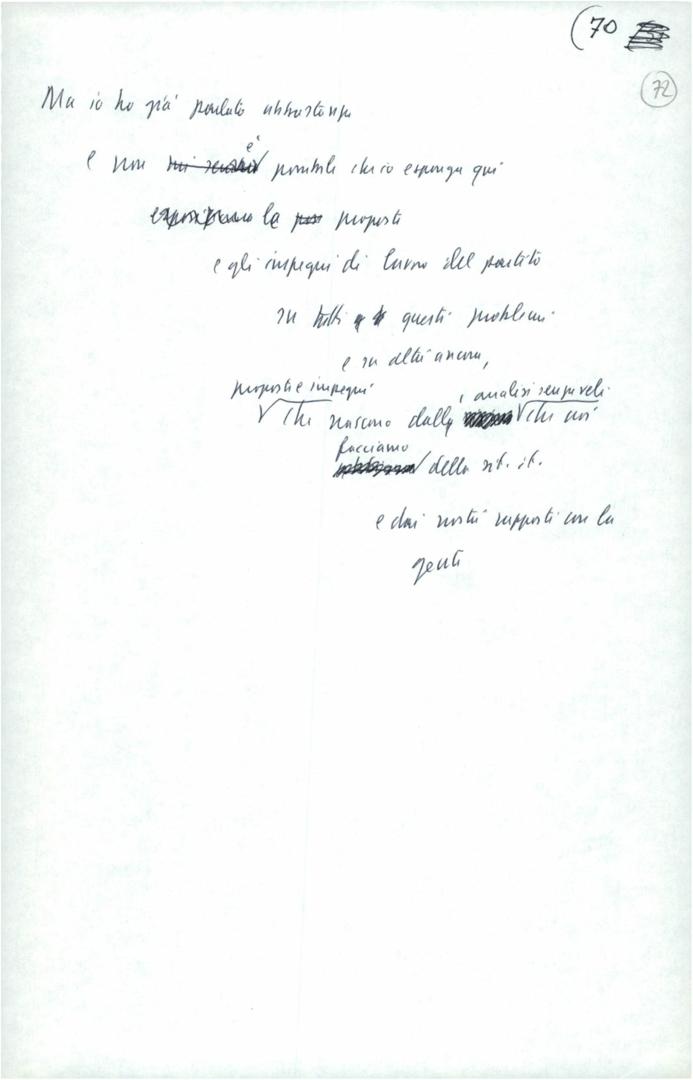 (70
72
Ma io ho già parlato abbastanza
è
e non possibile che io esponga qui
le proposte
e gli impegni di lavoro del partito
su tutti questi problemi
e su altri ancora,
proposte e impegni analisi
che nascono dalle che noi
facciamo
della sit. it.
e dai nostri rapporti con la
gente